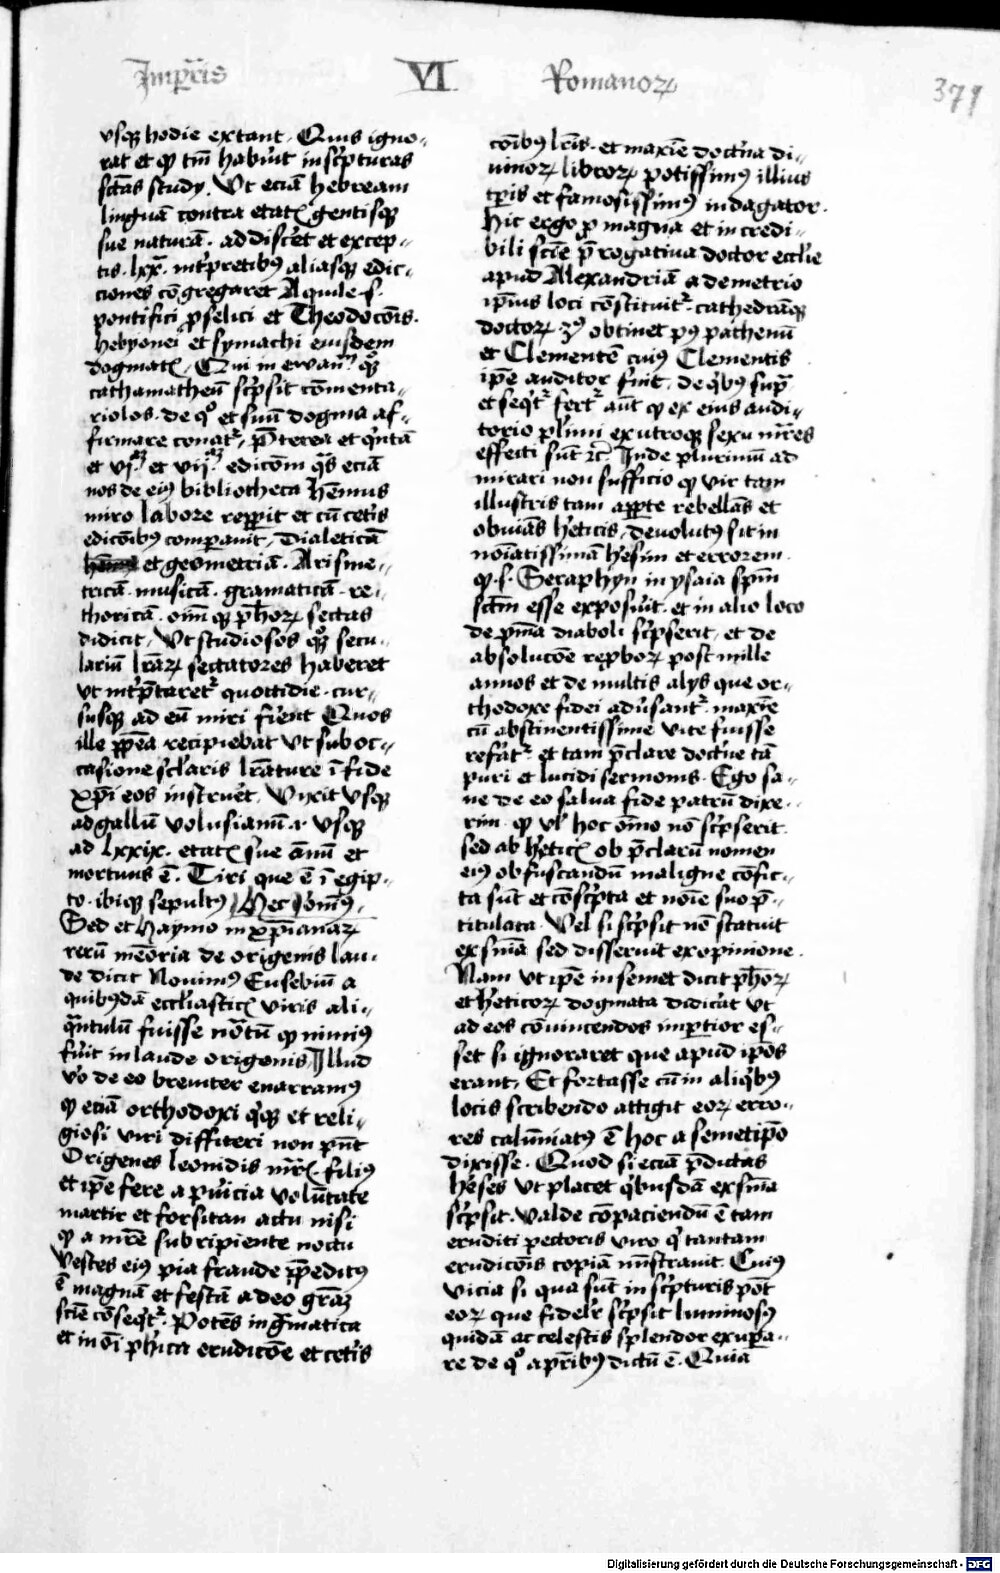 Imp̄ris VI Romanoꝝ
379
vsqꝫ hodie extant · Quis igno-
rat et qꝫ tm̄ habu̓it in sc̓pturas
sctās study · Vt eciā hebream
linguā contra etatꝭ gentisqꝫ
sue naturā · addisce̓t et excep-
tis · lxx · int̓pretibꝰ aliasqꝫ edic-
ciones cōgregaret Aquile · s ·
pontifici p̱selici et Theodocōis ·
hebyonei et symachi eiusdem
dogmatꝭ
cathamatheū sc̓psit cōmenta-
riolos · de qͦ et suū dogma af-
firmare conatͬ · P̄terea et qͥntā
et vjᵃᵐ et vijᵃᵐ edicōm qͣs eciā
nos de eiꝰ bibliotheca habemus
miro labore repp̱it et cū cetis̓
edicōibꝰ compauit · Dialeticā
et geometriā · Arisme-
tricā · musicā · gramaticā · re-
thoricā · oīm qꝫ ph̄oꝝ sectas
didicit · Vt studiosos qͦqꝫ secu-
lariū lr̄aꝝ sectatores haberet
vt int̓p̄taretͬ quottidie · cur-
susqꝫ ad eū miri fierent Quos
ille p̱p̄ea recipiebat vt sub oc-
casione sc̓laris lr̄ature ī fide
xp̄i eos instrue̓t · Vixit vsqꝫ
ad gallū volusianū · i · vsqꝫ
ad lxxix · etatꝭ sue ānū et
mortuus ē · Tiri que ē ī egip-
to · ibiqꝫ sepultꝰ · Hec Jeronimꝰ ·
Sed et Haymo in xp̄ianaꝝ
rerū memōria de origenis lau-
de dicit Nouimꝰ Eusebiū a
quibꝰdā eccl̓iasticꝭ viris ali-
qͣntulū fuisse notātū qꝫ nimiꝰ
fu̓it in laude origenis · Illud
v̓o de eo breuiter enarramꝰ
qꝫ eciā orthodoxi qͥqꝫ et reli-
giosi viri diffiteri non pn̄t
Origenes leonidis mr̄ꝭ · filiꝰ
et ip̄e fere a pu̓icia volūtate
martir et forsitan actu nisi
qꝫ a mr̄e subripiente noctu
vestes eiꝰ pia fraude p̱peditꝰ
ē magnā et festā adeo gr̄aꝫ
sciē cōseqͥtͬ · Potēs in gͣmatica
et in oī ph̄ica erudicōe et cetis̓
coībꝰ lr̄is · et maxīe doctͥna di-
uinoꝝ libroꝝ potissimꝰ illius
tp̄is et famosissimꝰ indagator ·
Hic ergo p̱ magna et incredi-
bili sciē p̄rogatiua doctor eccl̓ie
apud Alexandriā a demetrio
ip̄ius loci cōstituitͬ · cathedrāqꝫ
doctoꝝ · 3ꝰ obtinet pꝰ pathenū
et Clementē cuiꝰ Clementis
ip̄e auditor fuit · de qͥbꝰ supͣ
et seqͥtͬ fertͬ aūt qꝫ ex eius audi-
torio pl̓imi ex utroqꝫ sexu mr̄es
effecti sūt ⁊c̄ · Inde plurimū ad
mirari non sufficio qꝫ vir tam
illustris tam ap̱te rebellās et
obuiās he̓ticis · deuolutꝰ sit in
noīatissimā he̓sim et errorem ·
qꝫ · s · Seraphyn in ysaia sp̄m
sctm̄ esse exposu̓it · et in alio loco
de pn̄ia diaboli sc̓pserit · et de
absolucōe rep̱boꝝ post mille
annos et de multis alys que or-
thodoxe fidei adu̓santͬ · maxīe
cū abstinentissime vite fuisse
refe̓tͬ · et tam p̄clare doctͥne tā
puri et lucidi sermonis · Ego sa-
ne de eo salua fide patrū dixe-
rim · qꝫ vl̓ hoc oīno nō sc̓pserit ·
sed ab he̓ticꝭ ob p̄clarū nomen
eiꝰ obfuscandū maligne cōfic-
ta sūt et cōsc̓pta et noīe suo p̄-
titulata · Vel si sc̓psit nō statuit
ex sn̄ia sed disseruit ex opinione ·
Nam vt ip̄e in semet dicit ph̄oꝝ
et he̓ticoꝝ dogmata didicit̓ vt
ad eos cōuincendos imp̱tior es-
set si ignoraret que apud ip̄os
erant · Et fortasse cū in aliqͥbꝰ
locis scribendo attigit eoꝝ erro-
res calūniatꝰ ē hoc a semetip̄o
dixisse · Quod si eciā p̄dictas
he̓ses vt placet qͥbusdā ex sn̄ia
sc̓psit · valde cōpaciendū ē tam
eruditi pectoris viro qͥ tantam
erudicōis copiā mīstrauit · Cuiꝰ
vicia si qua sūt in sc̓pturis pōt
eoꝝ que fidelr̓ sc̓psit luminosꝰ
quidā ac celestis splendor exupa-
re de qͦ a pr̄ibꝰ dictū ē · Quia
Digitalisierung gefördert durch die Deutsche Forschungsgemeinschaft - DFG